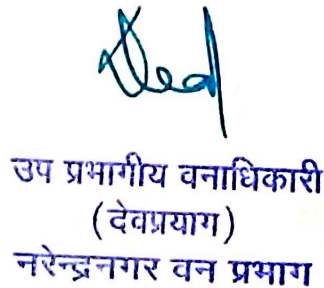 उप प्रभागीय वनाधिकारी
(देवप्रयाग)
नरेन्द्रनगर वन प्रभाग